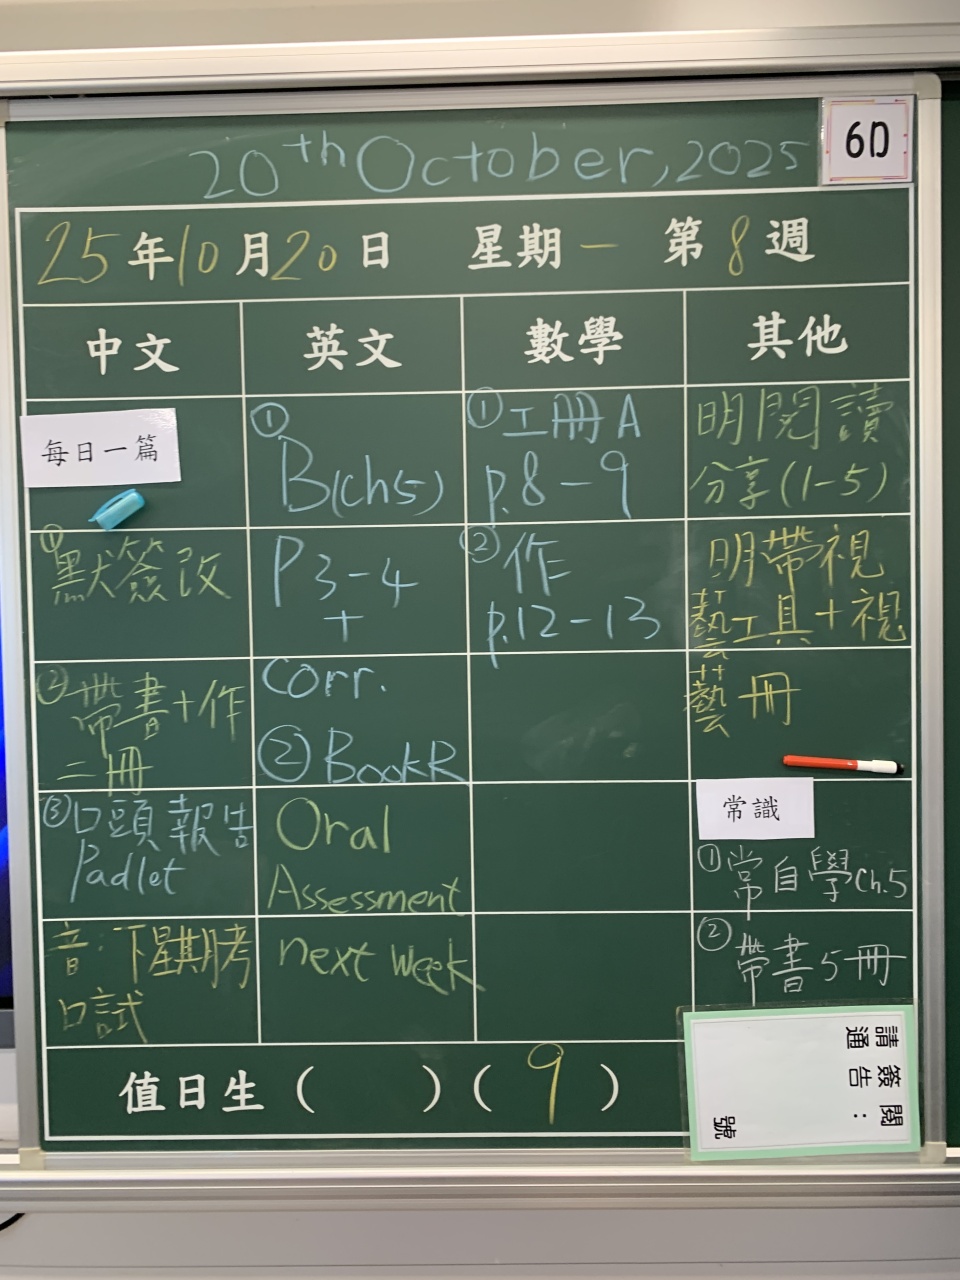 20th October, 2025
6D
25年10月20日 星期一 第8週
中文
每日一篇
①默簽改
②帶書+作
二冊
③口頭報告
Padlet
音:下星期考
口試
英文
①
B(ch5)
P3-4
+
Corr.
②BookR
Oral
Assessment
next week
數學
①工冊A
p.8-9
②作
p.12-13
其他
明閱讀
分享(1-5)
明帶視
藝工具+視
藝冊
常識
①常自學Ch.5
②帶書5冊
值日生( )(9)
請簽閱
通告:
號